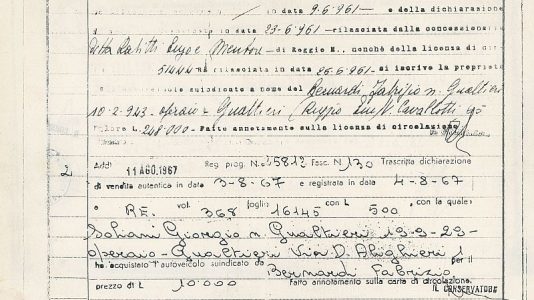 in data 9-6-961 e della dichiarazione
23-6-961 rilasciata dalla concessione
Ditta di Reggio E., nonchè della licenza di cir
51444 rilasciata in data 26-6-961 si iscrive la propriet
suindicato a nome del Bernardi Fabrizio n. Gualtieri
10-2-943 operaio Gualtieri (Reggio Cavallotti
L. 248.000 = Fatto annotamento sulla licenza di circolazione
2 Addì 11 AGO. 1967 Reg. prog. N. 45812 Fasc. N. 130 Trascritta dichiarazione
di vendita autentica in data 3-8-67 e registrata in data 4-8-67
a RE. vol. 368 foglio 16145 con L 500 con la quale
Soliani Giorgio n Gualtieri 13-9-29
operaio - Gualtieri Via D. Alighieri 1
ha acquistato l'autoveicolo suindicato da Bernardi Fabrizio per il
prezzo di L 10.000 fatto annotamento sulla carta di circolazione.
IL CONSERVATORE